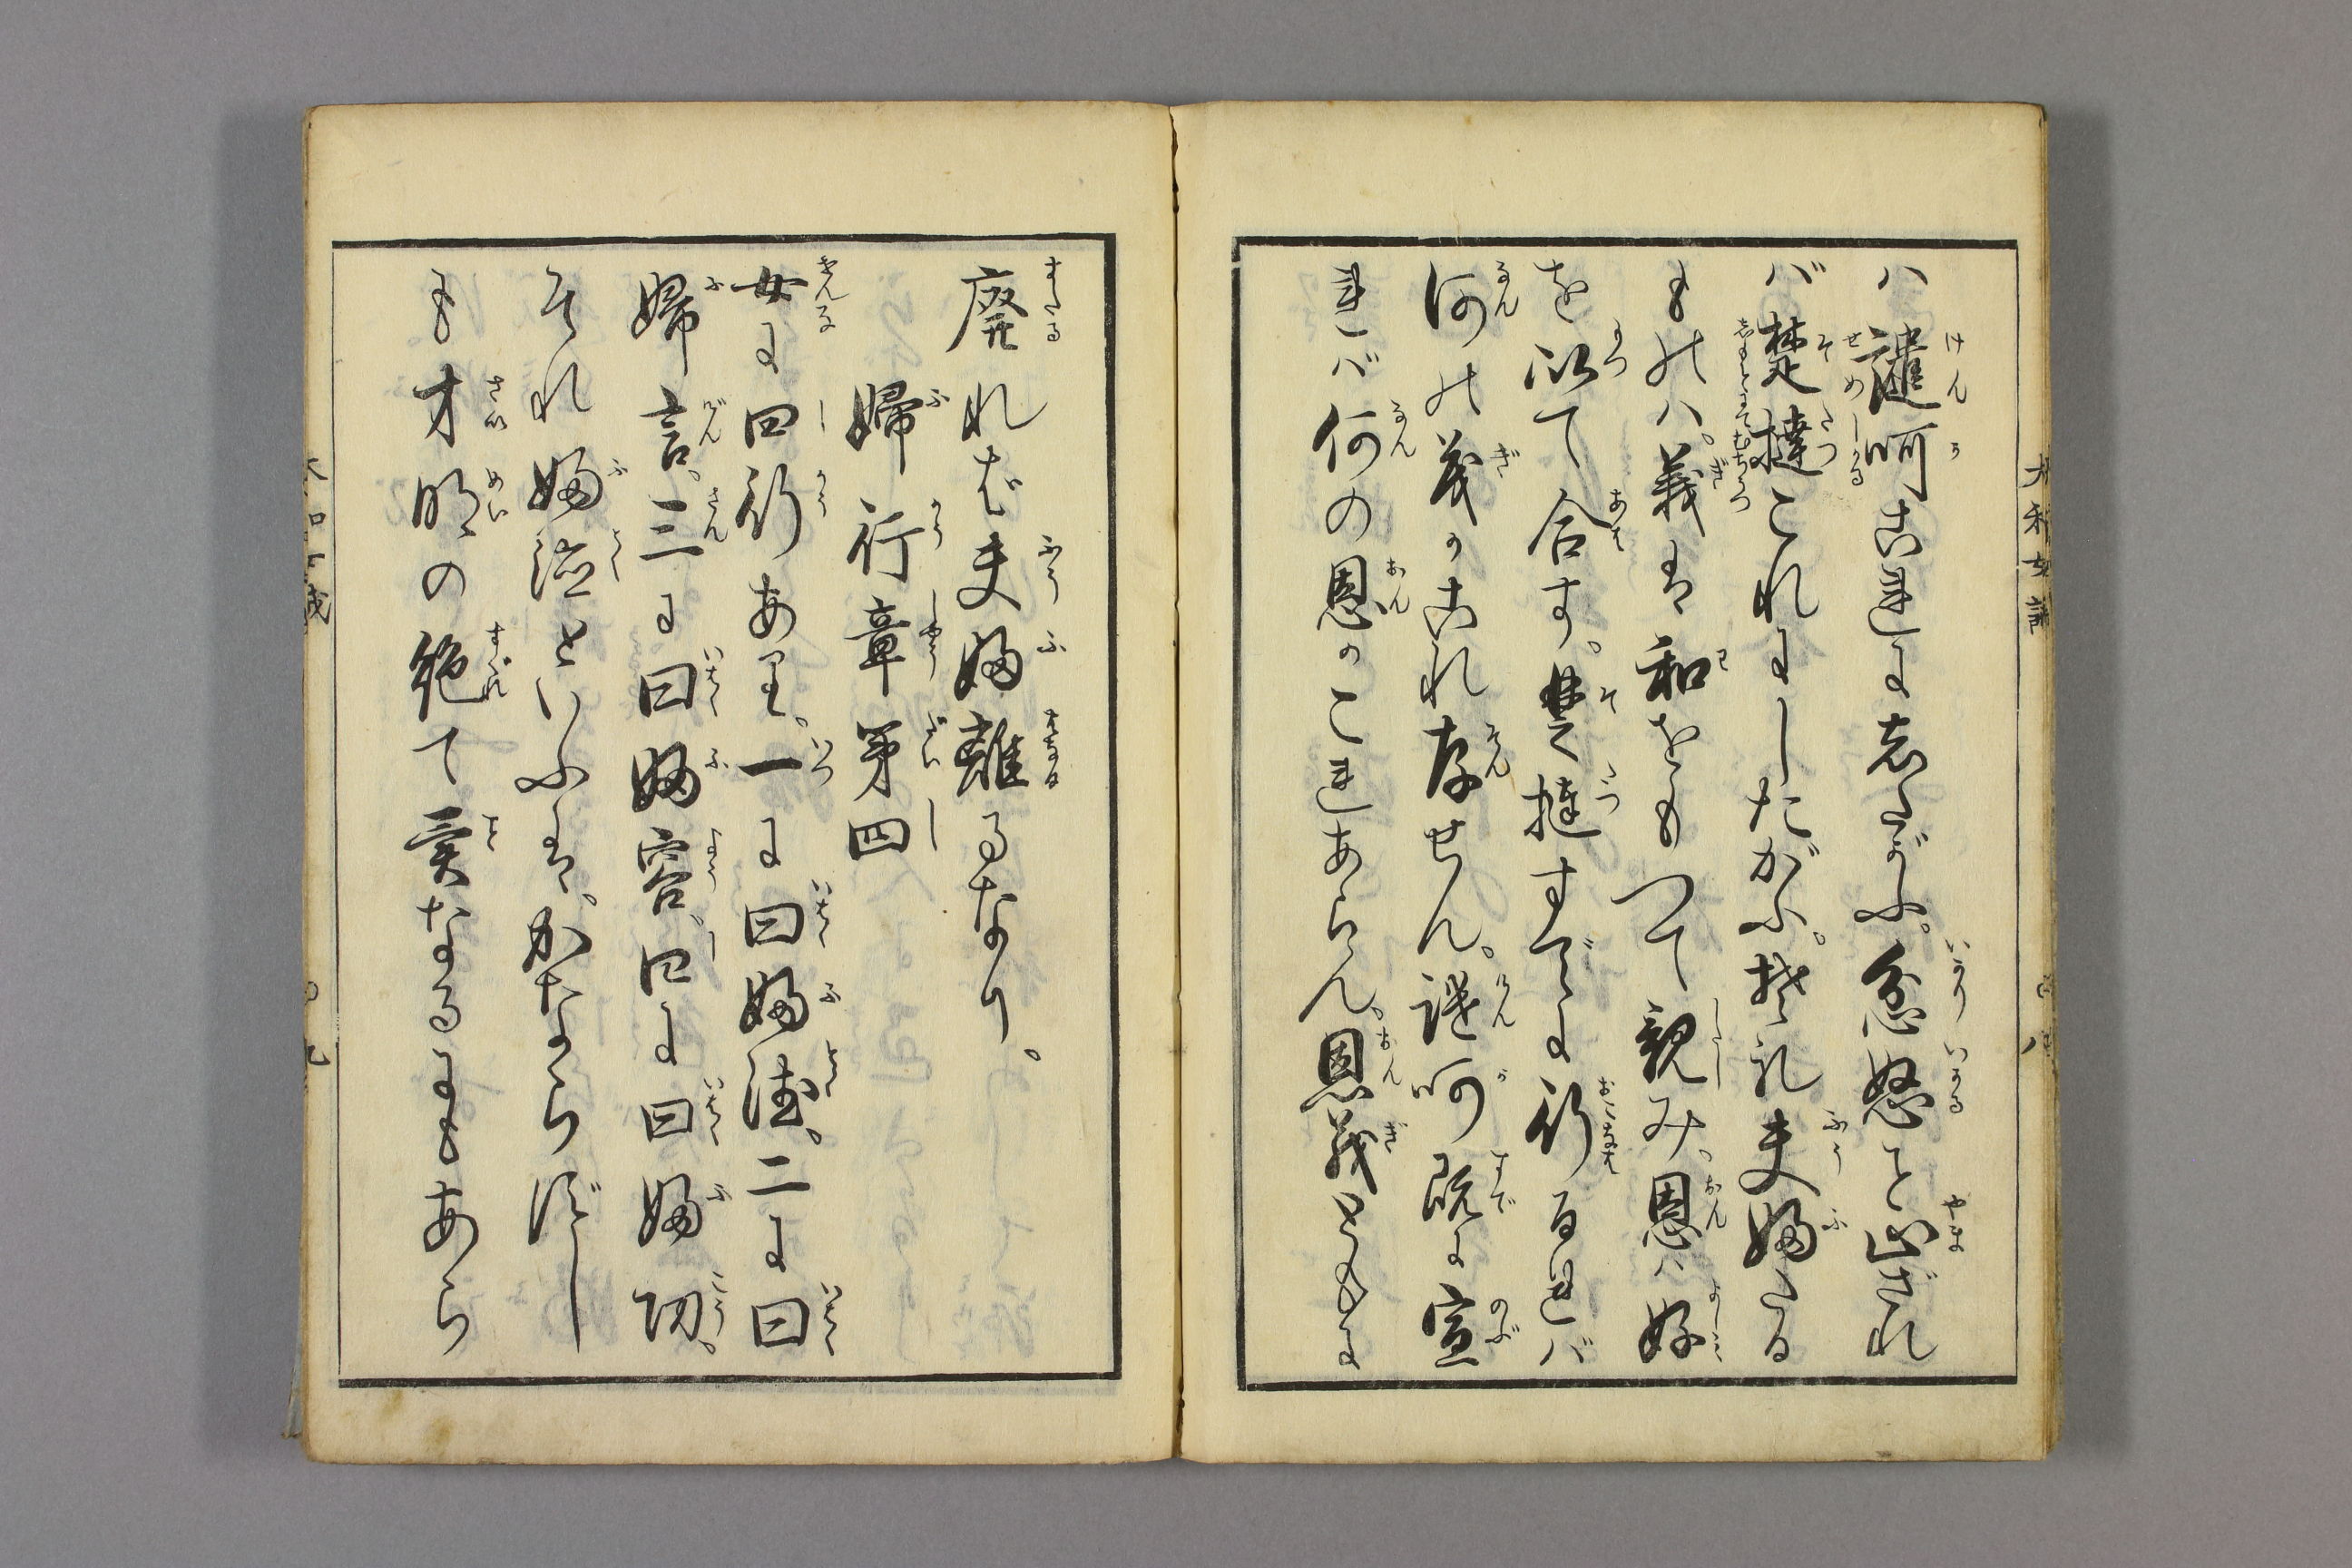 ハ譴呵これにしたがふ。忿怒を止ざれ
バ楚撻これにしたがふ。それ夫婦たる
ものハ。義は和をもつて親み。恩ハ好
を以て合す。楚撻すでに行るれバ
何の義かこれ存せん。譴呵既に宣
れバ何の恩かこれあらん。恩義ともに
廃れば夫婦離るなり。
婦行章第四
女に四行あり。一に曰婦徳。二に曰
婦言。三に曰婦容。四に曰婦功。
それ婦徳といふは。かならずし
も才明の絶て異なるにもあら